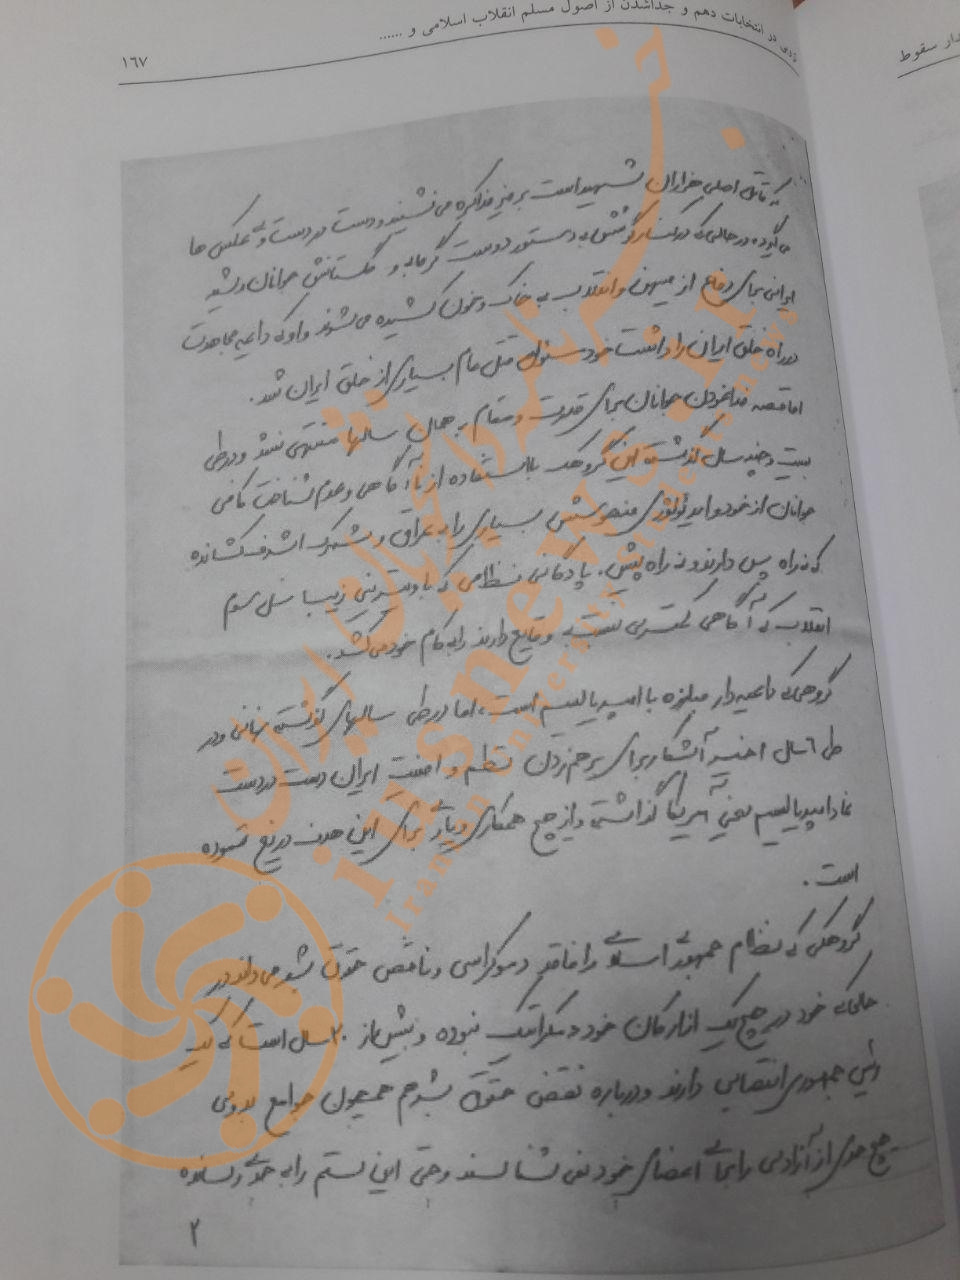 ردی در انتخابات دهم و جداشدن از اصول مسلم انقلاب اسلامی و ......
۱۶۷
دار سقوط
که قاتل اصلی هزاران شهید است بر میز مذاکره می‌نشیند و دست در دست وی عکس‌ها
می‌گیرد در حالی که در کنار گوشش به دستور دوست گرمابه و گلستانش جوانان رشید
ایرانی برای دفاع از میهن و انقلاب به خاک و خون کشیده می‌شوند و او که داعیه مجاهدت
در راه خلق ایران را داشت خود مسئول قتل عام بسیاری از خلق ایران شد.
اما قصه فدا نمودن جوانان برای قدرت و مقام به همان سالها منتهی نشد و در طی
بیست و چند سال گذشته این گروهک با استفاده از ناآگاهی و عدم شناخت کافی
جوانان از خود و ایدئولوژی بسیاری را به عراق و شهرک اشرف کشانده
که نه راه پس دارند و نه راه پیش. پادگانی نظامی که با ویترینی زیبا نسل سوم
انقلاب که آگاهی کمتری نسبت به وقایع دارند را به کام خود می‌کشد.
گروهی که داعیه‌دار مبارزه با امپریالیسم است، اما در طی سالهای گذشته نهانی و در
طی ۶ سال اخیر آشکارا برای برهم زدن نظم و امنیت ایران دست در دست
نماد امپریالیسم یعنی آمریکا گذاشته و از هیچ همکاری و یاری برای این هدف دریغ ننموده
است.
گروهکی که نظام جمهوری اسلامی را فاقد دموکراسی و ناقض حقوق بشر می‌داند در
حالی که خود در هیچ یک از ارکان خود دمکراتیک نبوده و بیش از ۲۰ سال است که یک
رئیس جمهوری انتصابی دارند و درباره نقض حقوق بشر هم همچون جوامع بدوی
هیچ حدی از آزادی را برای اعضای خود نمی‌شناسند و حتی این ستم را به حدی رسانده
۲
خبرگزاری دانشجویان ایران
isnews.ir